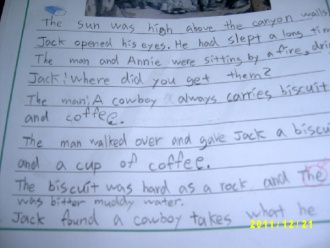 The sun was high above the canyon walls
Jack opened his eyes. He had slept a long time
The man and Annie were sitting by a fire,
Jack: Where did you get them?
The man: A cowboy always carries biscuit
and coffee.
The man walked over and gave Jack a biscuit
and a cup of coffee.
The biscuit was hard as a rock, and The
was bitter muddy water.
Jack found a cowboy takes what he
2011/12/21